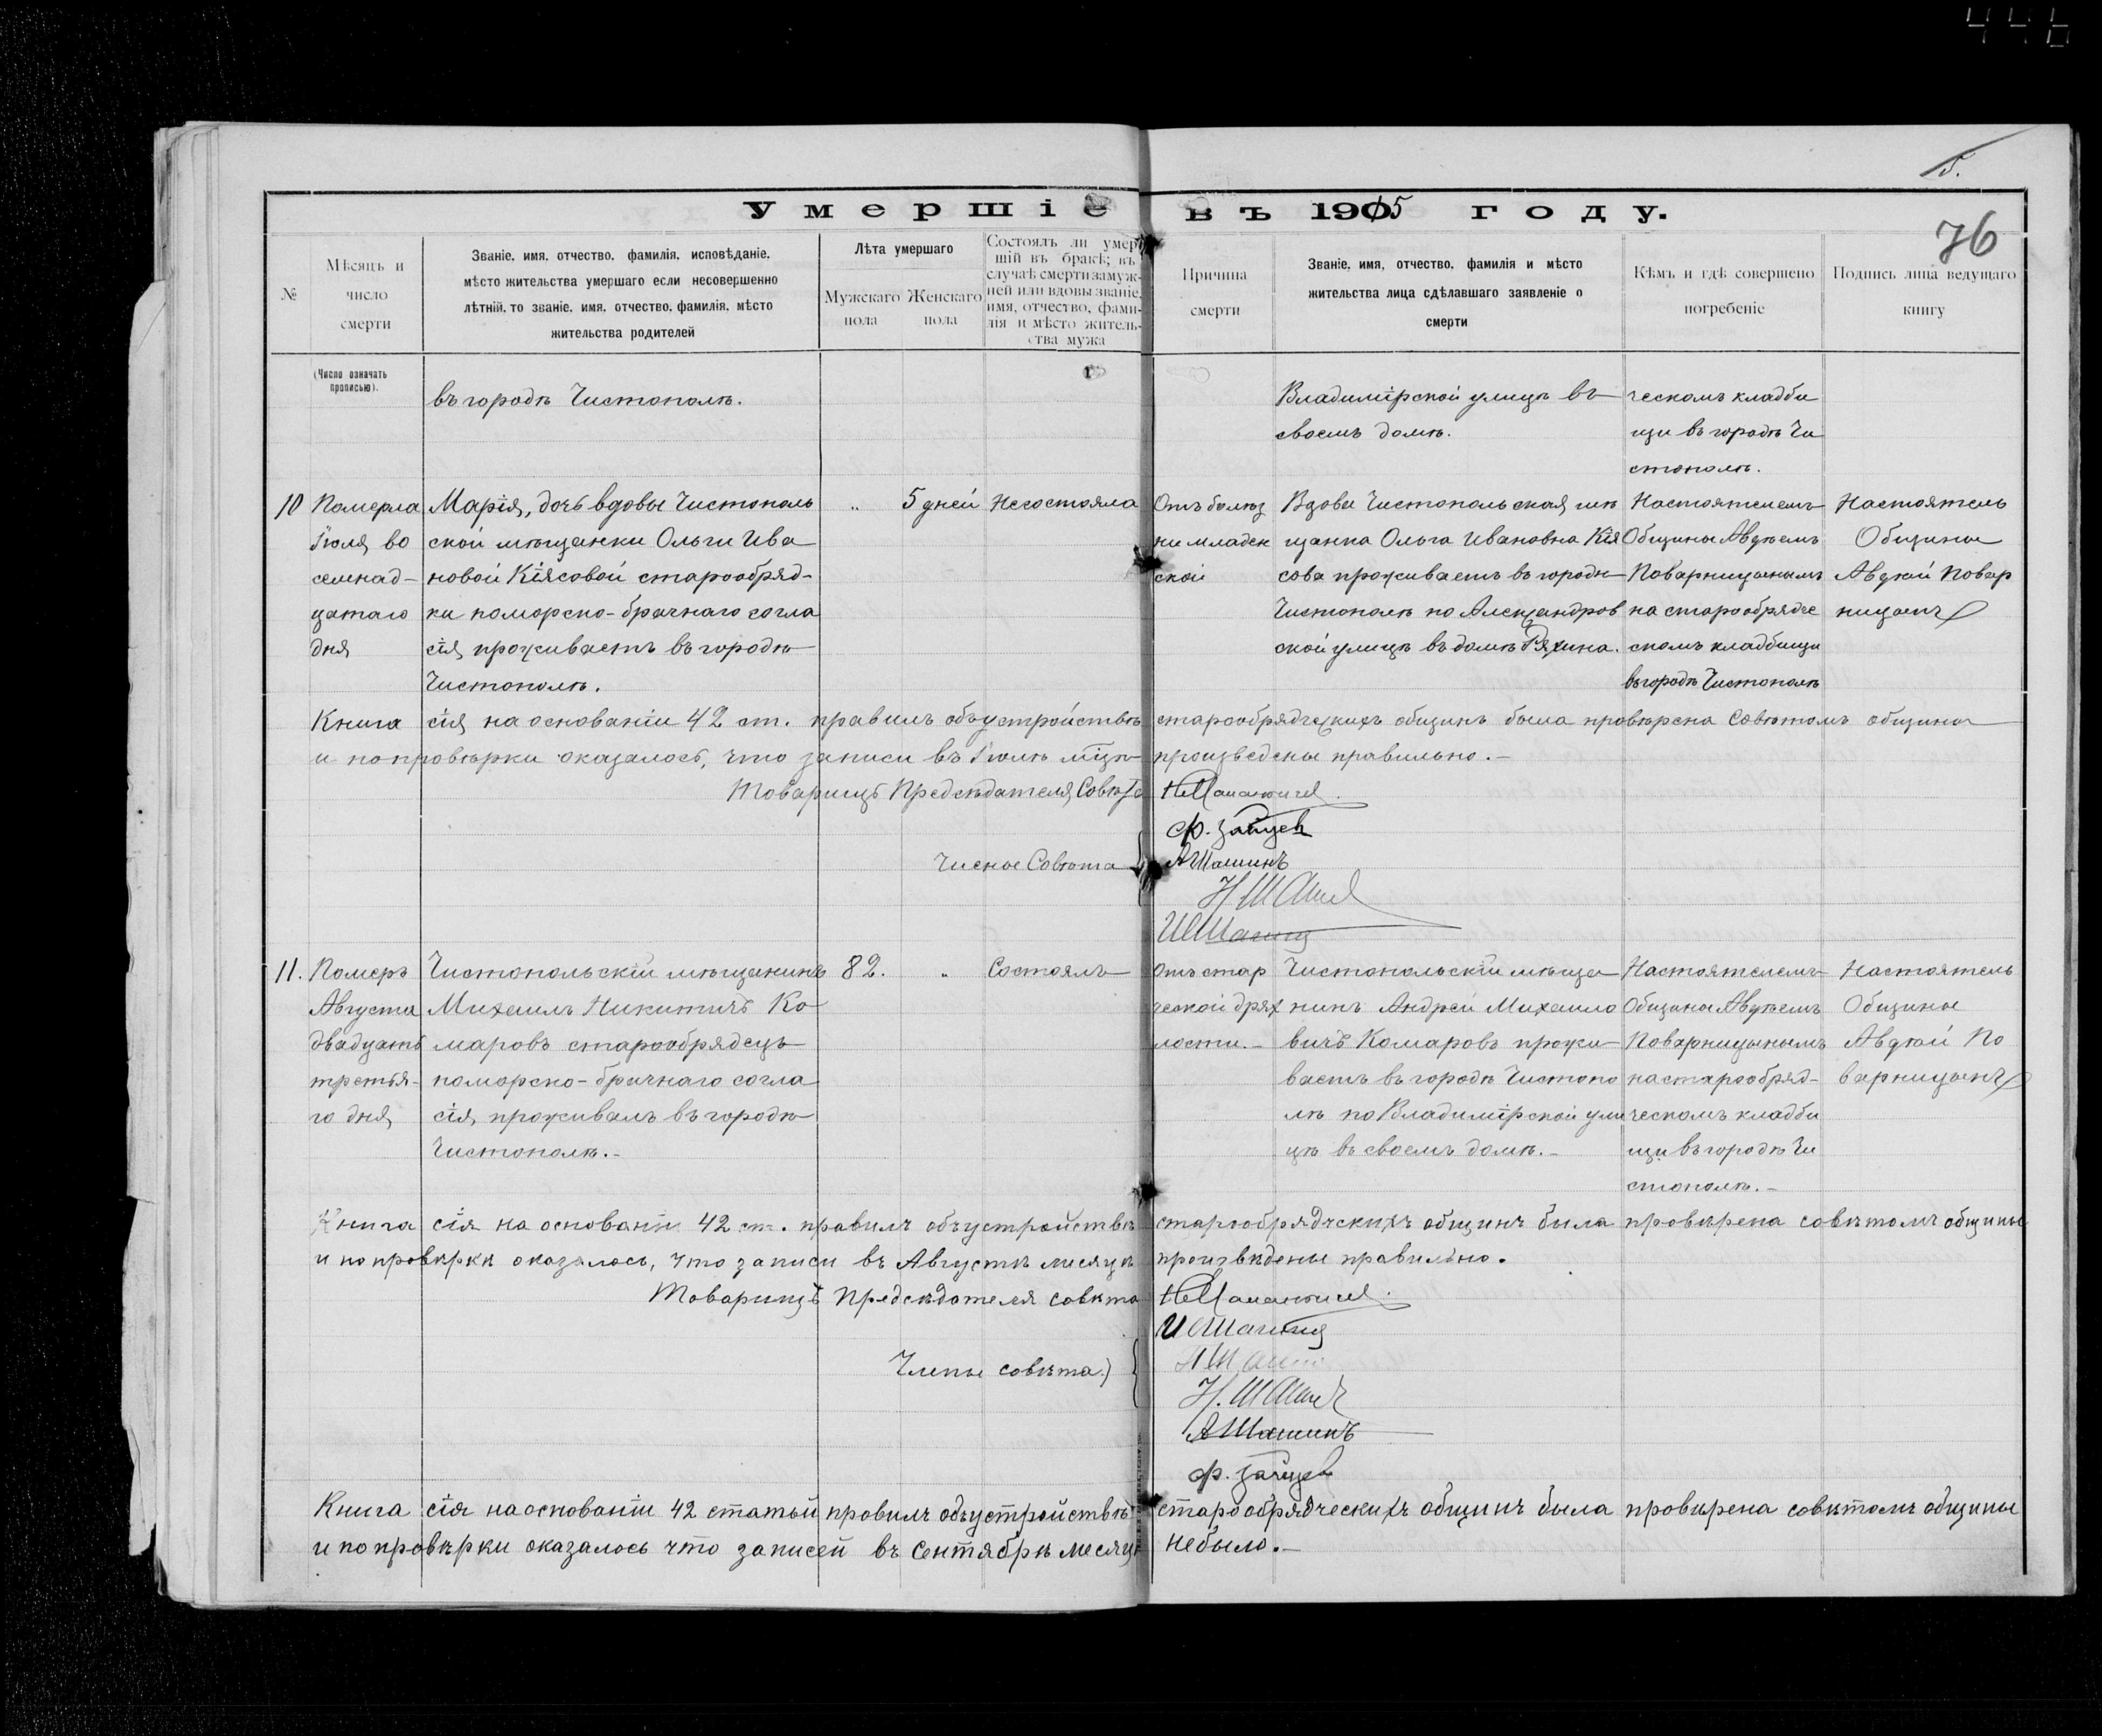 446
5.
Умершіе въ 1915 году.
76
№
Мѣсяцъ и
число
смерти
Званіе, имя, отчество, фамилія, исповѣданіе,
мѣсто жительства умершаго если несовершенно
лѣтній, то званіе, имя, отчество, фамилія, мѣсто
жительства родителей
Лѣта умершаго
Мужскаго
пола
Женскаго
пола
Состоялъ ли умер-
шій въ бракѣ; въ
случаѣ смерти замуж-
ней или вдовы званіе,
имя, отчество, фами-
лія и мѣсто житель-
ства мужа
Причина
смерти
Званіе, имя, отчество, фамилія и мѣсто
жительства лица сдѣлавшаго заявленіе о
смерти
Кѣмъ и гдѣ совершено
погребеніе
Подпись лица ведущаго
книгу
(Число означать
прописью).
въ городѣ Чистополѣ.
Владимірской улицѣ въ
своемъ домѣ.
ческомъ кладби
щи въ городѣ Чи
стополѣ.
10
Померла
Іюля во
семнад-
цатаго
дня
Марія, дочь вдовы Чистополь
ской мѣщанки Ольги Ива
новой Кіясовой старообряд-
ки поморско-брачнаго согла
сія, проживаетъ въ городѣ
Чистополѣ.
„
5 дней
Несостояла
Отъ болѣз
ни младен
ской
Вдова Чистопольская мѣ
щанка Ольга Ивановна Кія
сова проживаетъ въ городѣ
Чистополѣ по Александров
ской улицѣ въ домѣ Ряхина.
Настоятелемъ
Общины Авдѣемъ
Поварницынымъ
на старообрядче
скомъ кладбищи
въ городѣ Чистополѣ
Настоятель
Общины
Авдѣй Повар
ницынъ
Книга сія на основаніи 42 ст. правилъ объ устройствѣ старообрядческихъ общинъ была провѣрена Совѣтомъ общины
и по провѣрки оказалось, что записи въ Іюлѣ мцѣ произведены правильно.-
Товарищъ Предсѣдателя Совѣта
Ф. Зайцев
Члены Совѣта
А Шашинъ
Н Шаши
И Шашин
11.
Померъ
Августа
двадцать
третья-
го дня
Чистопольскій мѣщанинъ
Михаилъ Никитичъ Ко
маровъ старообрядецъ
поморско-брачнаго согла
сія, проживалъ въ городѣ
Чистополѣ.-
82.
„
Состоялъ
Отъ стар
ческой дрях
лости.-
Чистопольскій мѣща
нинъ Андрей Михайло
вичъ Комаровъ прожи
ваетъ въ городѣ Чистопо
лѣ по Владимірской ули
цѣ въ своемъ домѣ.-
Настоятелемъ
Общины Авдѣемъ
Поварницынымъ
на старообряд-
ческомъ кладби
щи въ городѣ Чи
стополѣ.-
Настоятель
Общины
Авдѣй По
варницынъ
Книга сія на основаніи 42 ст. правилъ объ устройствѣ старообрядческихъ общинъ была провѣрена совѣтомъ общины
и по провѣркѣ оказалось, что записи въ Августѣ месяцѣ произвѣдены правильно.
Товарищъ Предсѣдателя совѣта
И Шашин
Члены совѣта
Н. Шаши
А Шашинъ
Ф. Зайцев
Книга сія на основаніи 42 статьи правилъ объ устройствѣ старообрядческихъ общинъ была провѣрена совѣтомъ общины
и по провѣрки оказалось что записей въ Сентябрѣ месяцѣ небыло.-